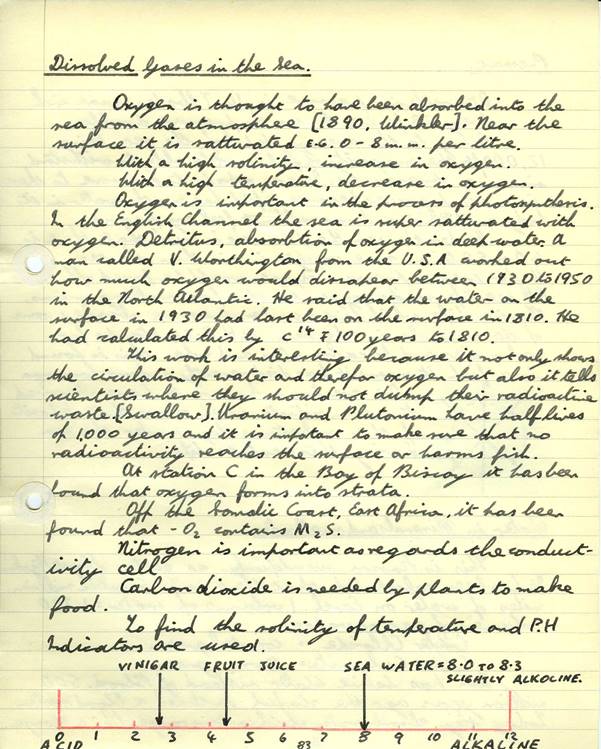 Dissolved Gases in the Sea.
Oxygen is thought to have been absorbed into the
sea from the atmosphere [1890, Winkler]. Near the
surface it is satturated E.G. 0 - 8 m.m. per litre.
With a high solinity, increase in oxygen.
With a high temperature, decrease in oxygen.
Oxygen is important in the process of photosynthesis.
In the English Channel the sea is super satturated with
oxygen. Detritus, absorbtion of oxygen in deep water. A
man called V. Worthington from the U.S.A worked out
how much oxygen would dissapear between 1930 to 1950
in the North Atlantic. He said that the water on the
surface in 1930 had last been on the surface in 1810. He
had calculated this by C¹⁴ ∓ 100 years to 1810.
This work is interesting because it not only shows
the circulation of water and therefor oxygen but also it tells
scientists where they should not dump their radioactive
waste. [Swallow]. Uranium and Plutonium have half lives
of 1,000 years and it is important to make sure that no
radioactivity reaches the surface or harms fish.
At station C in the Bay of Biscay it has been
found that oxygen forms into strata.
Off the Somalic Coast, East Africa, it has been
found that - O₂ contains M₂S.
Nitrogen is important as regards the conduct-
ivity cell
Carbon dioxide is needed by plants to make
food.
To find the solinity of temperature and P.H
Indicators are used.
VINIGAR FRUIT JUICE SEA WATER = 8·0 TO 8·3
SLIGHTLY ALKOLINE.
0 1 2 3 4 5 6 7 8 9 10 11 12
ACID 83 ALKALINE